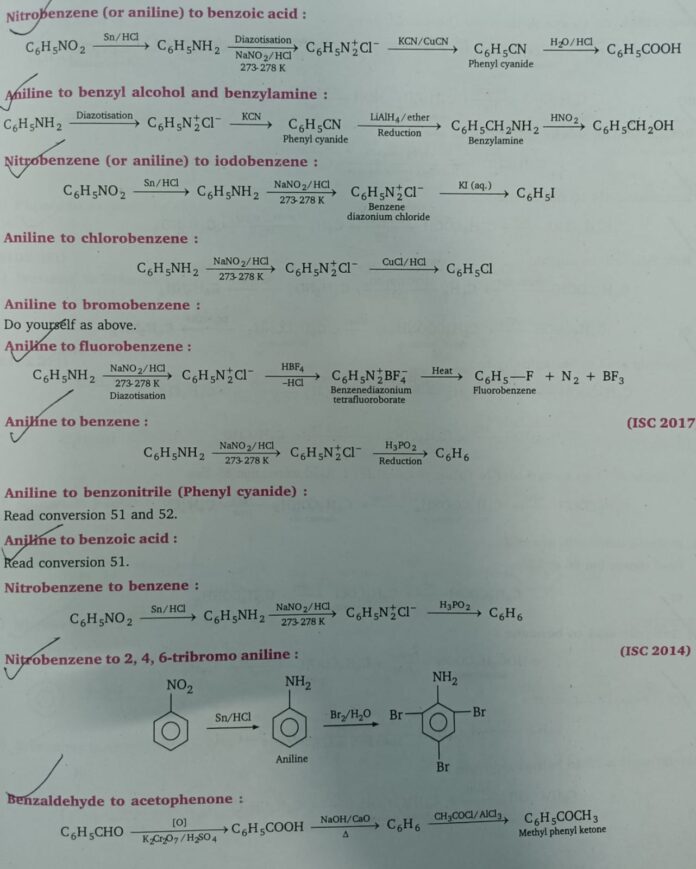 Nitrobenzene (or aniline) to benzoic acid :
C₆H₅NO₂ —Sn/HCl→ C₆H₅NH₂ —Diazotisation NaNO₂/HCl 273-278 K→ C₆H₅N₂⁺Cl⁻ —KCN/CuCN→ C₆H₅CN —H₂O/HCl→ C₆H₅COOH
Phenyl cyanide
Aniline to benzyl alcohol and benzylamine :
C₆H₅NH₂ —Diazotisation→ C₆H₅N₂⁺Cl⁻ —KCN→ C₆H₅CN —LiAlH₄/ether Reduction→ C₆H₅CH₂NH₂ —HNO₂→ C₆H₅CH₂OH
Phenyl cyanide Benzylamine
Nitrobenzene (or aniline) to iodobenzene :
C₆H₅NO₂ —Sn/HCl→ C₆H₅NH₂ —NaNO₂/HCl 273-278 K→ C₆H₅N₂⁺Cl⁻ —KI (aq.)→ C₆H₅I
Benzene
diazonium chloride
Aniline to chlorobenzene :
C₆H₅NH₂ —NaNO₂/HCl 273-278 K→ C₆H₅N₂⁺Cl⁻ —CuCl/HCl→ C₆H₅Cl
Aniline to bromobenzene :
Do yourself as above.
Aniline to fluorobenzene :
C₆H₅NH₂ —NaNO₂/HCl 273-278 K Diazotisation→ C₆H₅N₂⁺Cl⁻ —HBF₄ –HCl→ C₆H₅N₂⁺BF₄⁻ —Heat→ C₆H₅—F + N₂ + BF₃
Benzenediazonium Fluorobenzene
tetrafluoroborate
Aniline to benzene : (ISC 2017
C₆H₅NH₂ —NaNO₂/HCl 273-278 K→ C₆H₅N₂⁺Cl⁻ —H₃PO₂ Reduction→ C₆H₆
Aniline to benzonitrile (Phenyl cyanide) :
Read conversion 51 and 52.
Aniline to benzoic acid :
Read conversion 51.
Nitrobenzene to benzene :
C₆H₅NO₂ —Sn/HCl→ C₆H₅NH₂ —NaNO₂/HCl 273-278 K→ C₆H₅N₂⁺Cl⁻ —H₃PO₂→ C₆H₆
Nitrobenzene to 2, 4, 6-tribromo aniline : (ISC 2014)
NO₂ NH₂ NH₂
Sn/HCl Br₂/H₂O Br Br
Aniline
Br
Benzaldehyde to acetophenone :
C₆H₅CHO —[O] K₂Cr₂O₇/H₂SO₄→ C₆H₅COOH —NaOH/CaO Δ→ C₆H₆ —CH₃COCl/AlCl₃→ C₆H₅COCH₃
Methyl phenyl ketone